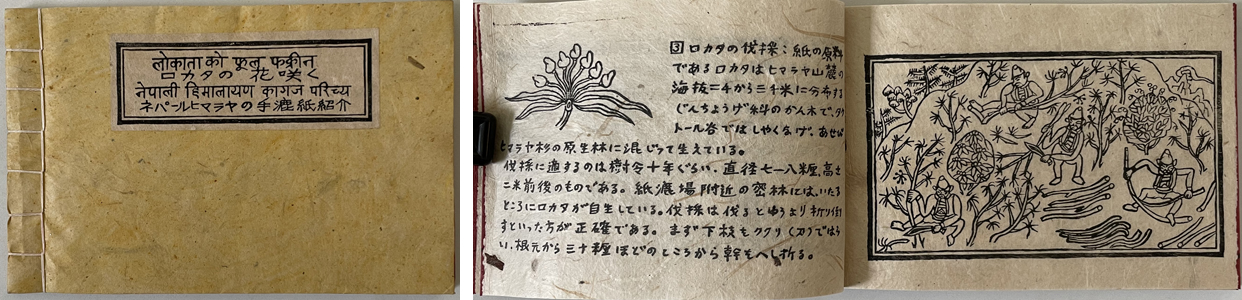 लोकाता को फूल फक्रीन
ロカタの花咲く
नेपाली हिमालायण कागज परिच्य
ネパールヒマラヤの手漉紙紹介
3 ロカタの伐採：紙の原料
であるロカタはヒマラヤ山麓の
海抜二千から三千米に分布する
じんちょうげ科のかん木で、
トール谷ではしゃくなげ、あせび
ヒマラヤ杉の原生林に混じって生えている。
伐採に適するのは樹令十年ぐらい、直径七一八糎、高さ
二米前後のものである。紙漉場附近の密林には、いたる
ところにロカタが自生している。伐採は伐るとゆうより折り倒
すといった方が正確である。まず下枝をククリ(刀)ではら
い、根元から三十糎ほどのところから幹をへし折る。